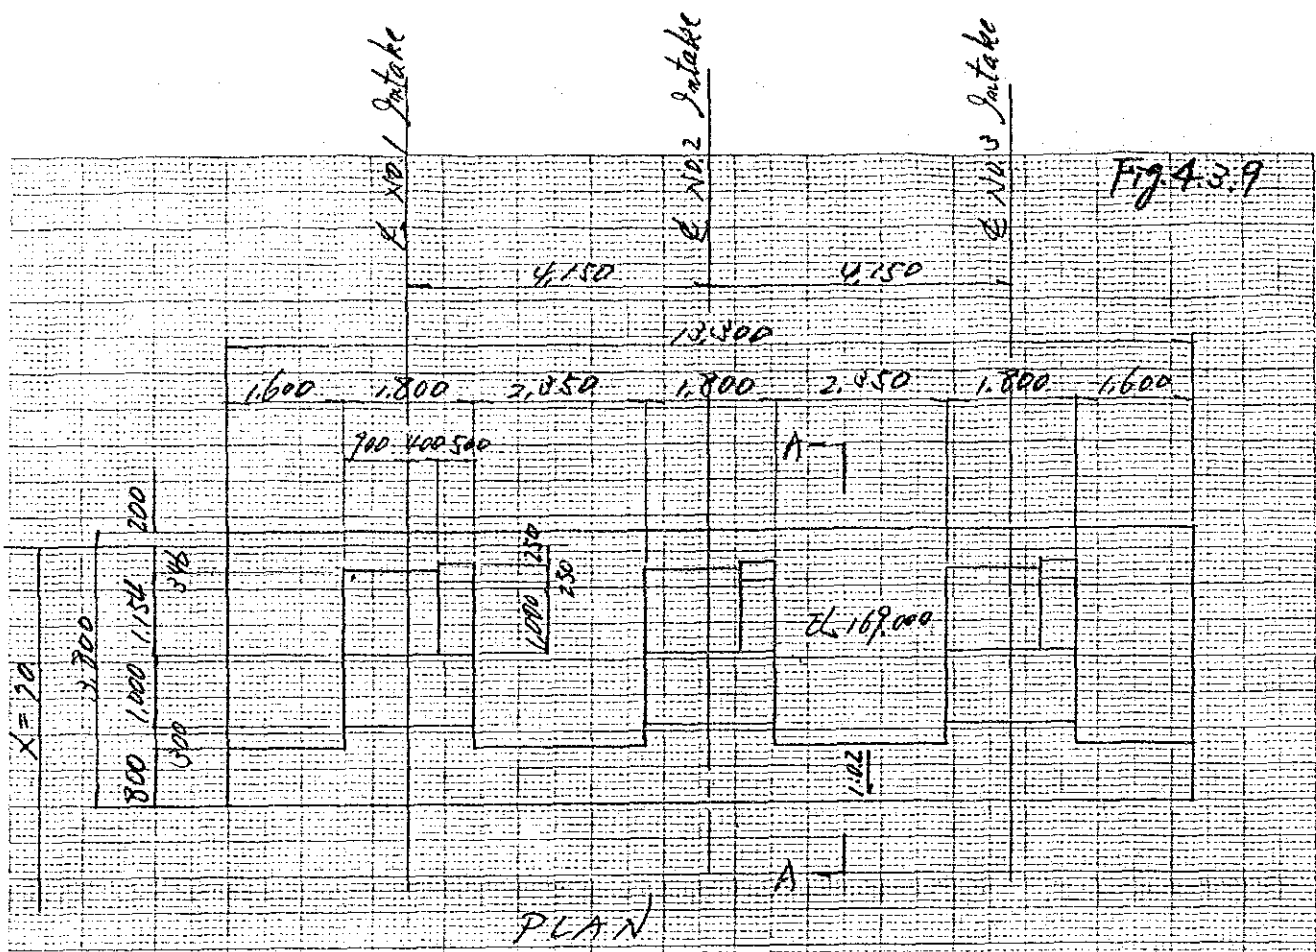 ℄ NO.1 Intake
℄ NO.2 Intake
℄ NO.3 Intake
Fig.4.3.9
4,150 4,150
13,300
1.600 1.800 2,350 1.800 2.350 1.800 1.600
900 400 500
A
200
346
1.154
1.000
300
800
3.800
250
250
1,000
EL.169.000
1:0.2
A
PLAN